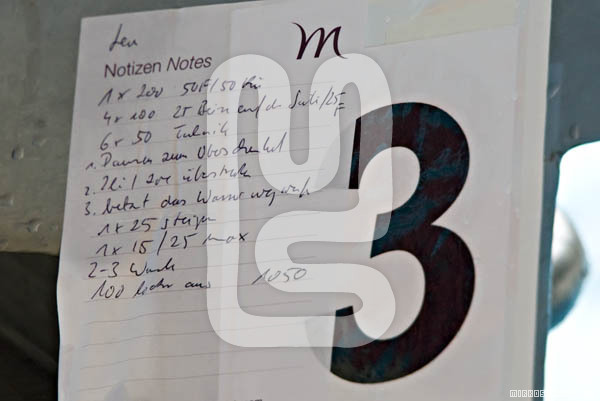 m
Notizen Notes
1 x 200 50F/50
4 x 100 25 Beine auf der Seite/25 F
6 x 50 Technik
1. Daumen zum Oberschenkel
2.
3. betont das Wasser wegwerfen
1 x 25 steigern
1 x 15/25 max
2-3 Wende
100 locker aus 1050
3